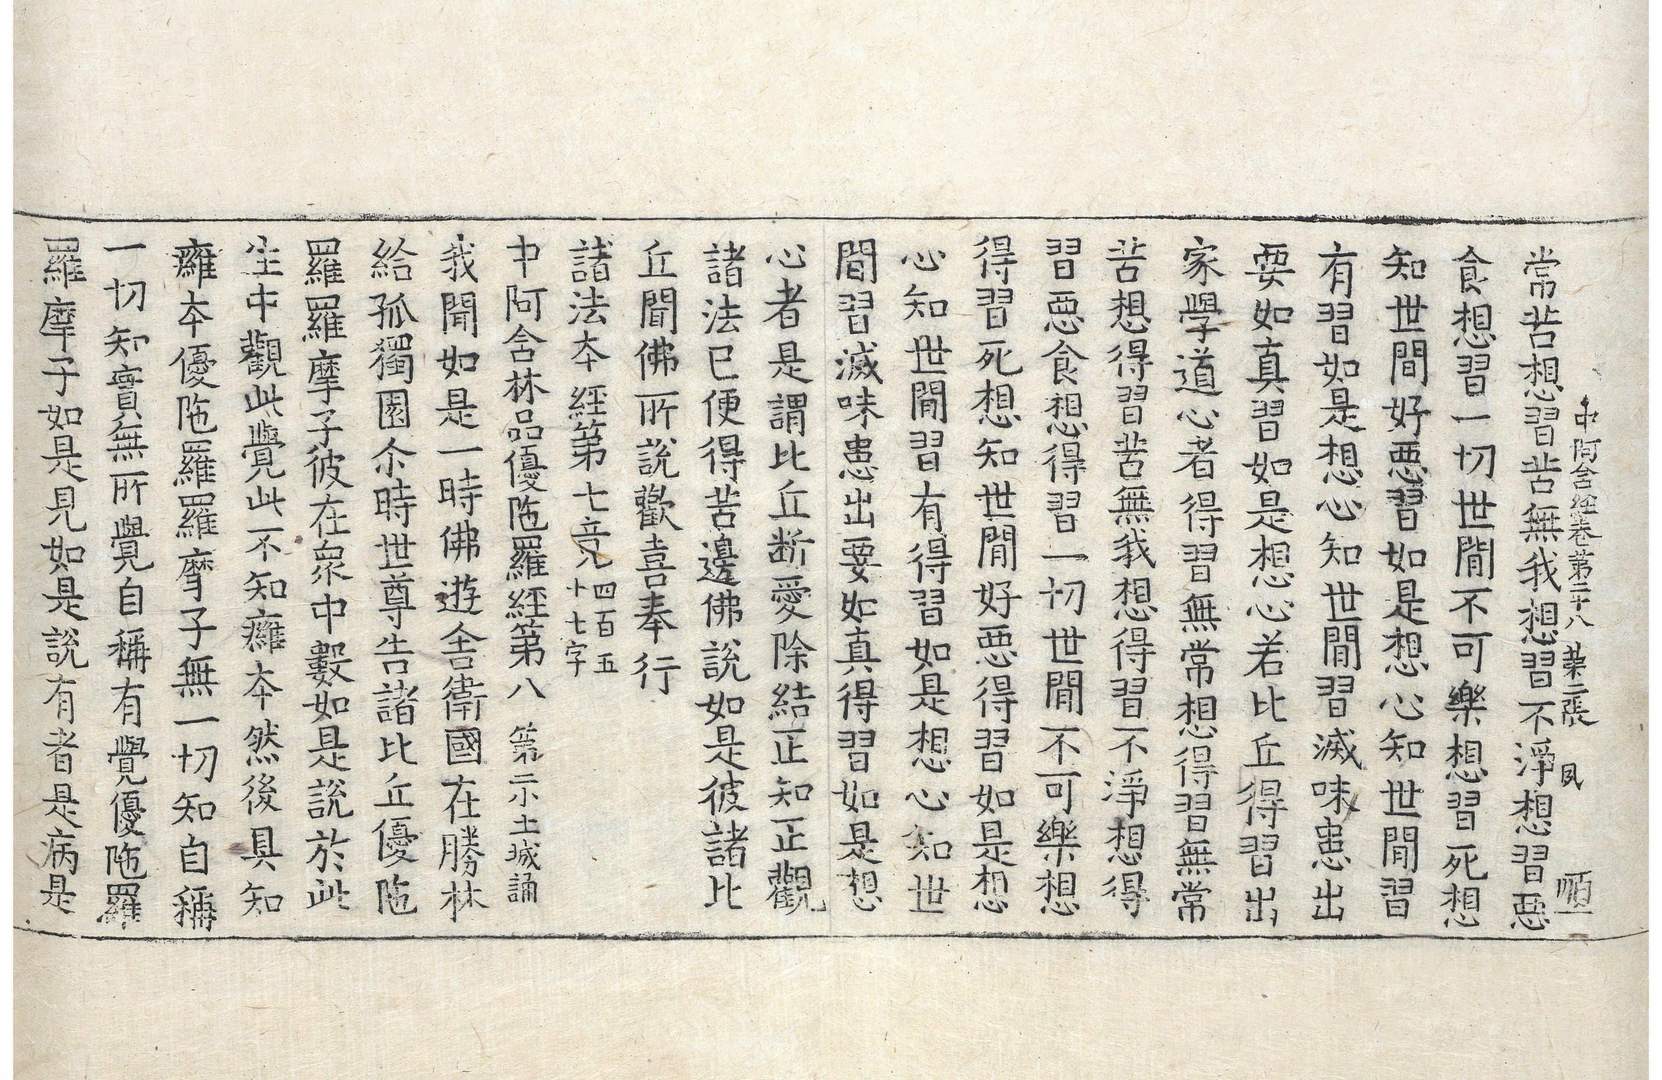 中阿含經卷第二十八　第二張　夙　順一
常苦想習苦無我想習不淨想習惡
食想習一切世間不可樂想習死想
知世間好惡習如是想心知世間習
有習如是想心知世間習滅味患出
要如真習如是想心若比丘得習出
家學道心者得習無常想得習無常
苦想得習苦無我想得習不淨想得
習惡食想得習一切世間不可樂想
得習死想知世間好惡得習如是想
心知世間習有得習如是想心知世
間習滅味患出要如真得習如是想
心者是謂比丘断愛除結正知正觀
諸法已便得苦邊佛說如是彼諸比
丘聞佛所說歡喜奉行
諸法夲經第七竟四百五十七字
中阿含林品優陁羅經第八　第二小土城誦
我聞如是一時佛遊舍衛國在勝林
給孤獨園尒時世尊告諸比丘優陁
羅羅摩子彼在衆中數如是說於此
生中觀此覺此不知癰夲然後具知
癰夲優陁羅羅摩子無一切知自稱
一切知實無所覺自稱有覺優陁羅
羅摩子如是見如是說有者是病是